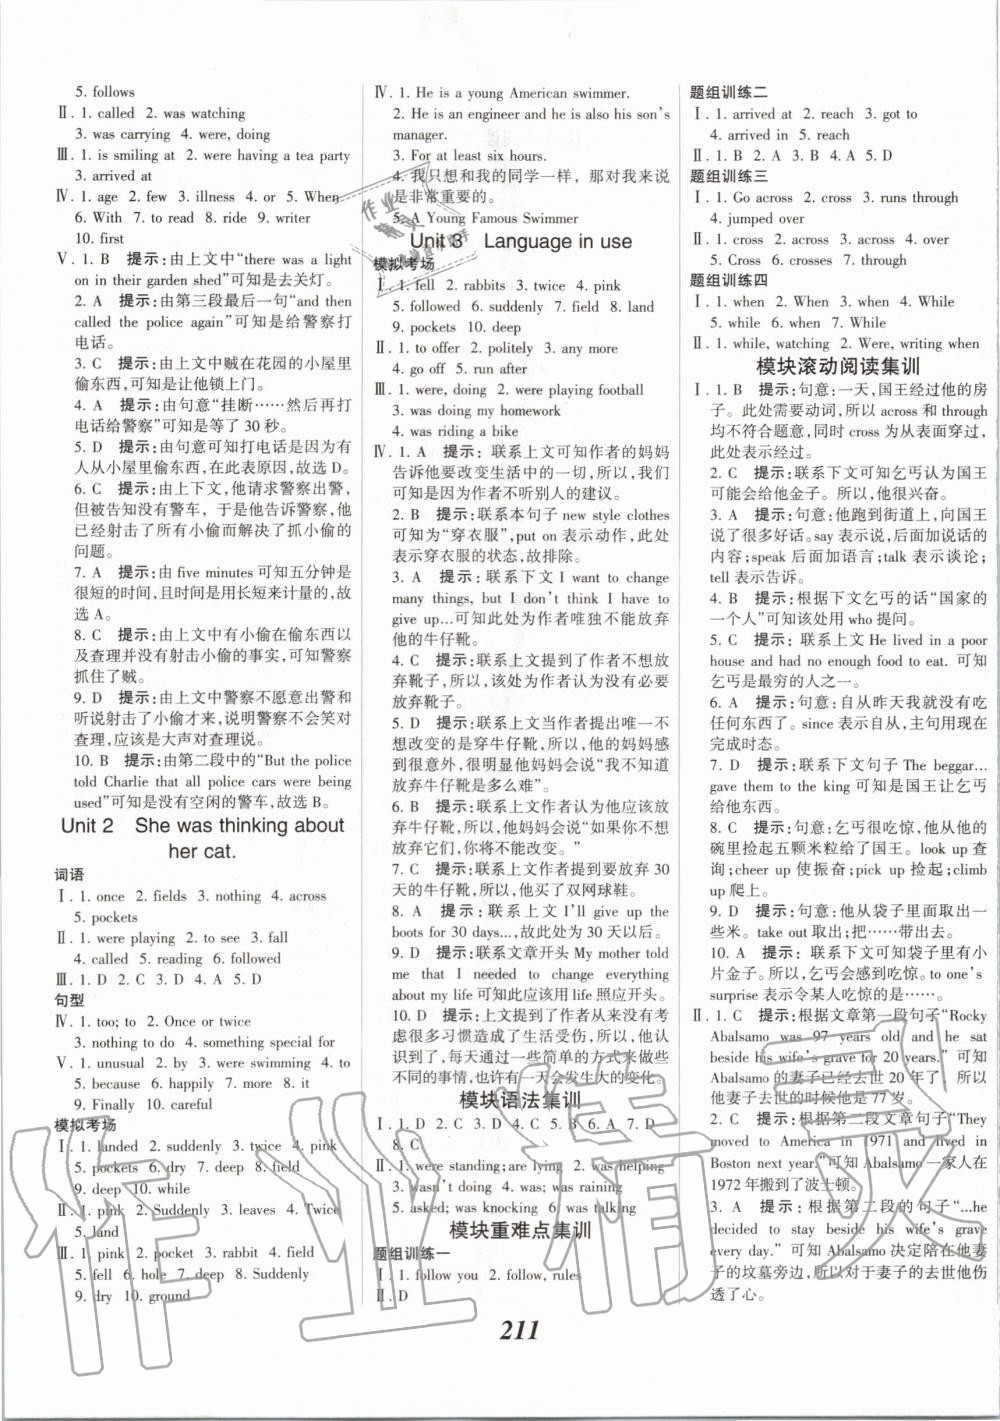 5. follows
Ⅱ. 1. called 2. was watching
3. was carrying 4. were, doing
Ⅲ. 1. is smiling at 2. were having a tea party
3. arrived at
Ⅳ. 1. age 2. few 3. illness 4. or 5. When
6. With 7. to read 8. ride 9. writer
10. first
Ⅴ. 1. B 提示:由上文中“there was a light
on in their garden shed”可知是去关灯。
2. A 提示:由第三段最后一句“and then
called the police again”可知是给警察打
电话。
3. C 提示:由上文中贼在花园的小屋里
偷东西,可知是让他锁上门。
4. A 提示:由句意“挂断……然后再打
电话给警察”可知是等了 30 秒。
5. D 提示:由句意可知打电话是因为有
人从小屋里偷东西,在此表原因,故选 D。
6. C 提示:由上下文,他请求警察出警,
但被告知没有警车，于是他告诉警察,他
已经射击了所有小偷而解决了抓小偷的
问题。
7. A 提示:由 five minutes 可知五分钟是
很短的时间,且时间是用长短来计量的,故
选 A。
8. C 提示:由上文中有小偷在偷东西以
及查理并没有射击小偷的事实,可知警察
抓住了贼。
9. D 提示:由上文中警察不愿意出警和
听说射击了小偷才来,说明警察不会笑对
查理,应该是大声对查理说。
10. B 提示:由第二段中的“But the police
told Charlie that all police cars were being
used”可知是没有空闲的警车,故选 B。
Unit 2 She was thinking about
her cat.
词语
Ⅰ. 1. once 2. fields 3. nothing 4. across
5. pockets
Ⅱ. 1. were playing 2. to see 3. fall
4. called 5. reading 6. followed
Ⅲ. 1. D 2. C 3. C 4. A 5. D
句型
Ⅳ. 1. too; to 2. Once or twice
3. nothing to do 4. something special for
Ⅴ. 1. unusual 2. by 3. were swimming 4. to
5. because 6. happily 7. more 8. times
9. Finally 10. careful
模拟考场
Ⅰ. 1. landed 2. suddenly 3. twice 4. pink
5. pockets 6. dry 7. deep 8. field
9. deep 10. while
Ⅱ. 1. pink 2. Suddenly 3. leaves 4. Twice
5. land
Ⅲ. 1. pink 2. pocket 3. rabbit 4. field
5. fell 6. hole 7. deep 8. Suddenly
9. dry 10. ground
Ⅳ. 1. He is a young American swimmer.
2. He is an engineer and he is also his son's
manager.
3. For at least six hours.
4. 我只想和我的同学一样，那对我来说
是非常重要的。
5. A Young Famous Swimmer
Unit 3 Language in use
模拟考场
Ⅰ. 1. fell 2. rabbits 3. twice 4. pink
5. followed 6. suddenly 7. field 8. land
9. pockets 10. deep
Ⅱ. 1. to offer 2. politely 3. any more
4. go off 5. run after
Ⅲ. 1. were, doing 2. were playing football
3. was doing my homework
4. was riding a bike
Ⅳ. 1. A 提示：联系上文可知作者的妈妈
告诉他要改变生活中的一切,所以,我们
可知是因为作者不听别人的建议。
2. B 提示:联系本句子 new style clothes
可知为“穿衣服”,put on 表示动作,此
处表示穿衣服的状态,故排除。
3. A 提示:联系下文 I want to change
many things, but I don't think I have to
give up…可知此处应为作者唯独不能放弃
他的牛仔靴。
4. C 提示:联系上文提到了作者不想放
弃靴子,所以,该处应为作者认为没有必要
放弃靴子。
5. D 提示:联系上文当作者提出唯一不
想改变的是穿牛仔靴,所以,他的妈妈感
到很意外,很明显他妈妈会说“我不知道
放弃牛仔靴是多么难”。
6. B 提示:联系上文可知他应该为放
弃牛仔靴,所以,他妈妈会说“如果你不
放弃它们,你将不能改变。”
7. C 提示:联系上文提到要放弃穿 30
天的牛仔靴,所以,他买了双网球鞋。
8. A 提示:联系上文 I'll give up the
boots for 30 days…,故此处应为 30 天以后。
9. D 提示:联系文章开头 My mother told
me that I needed to change everything
about my life 可知此应该用 life 照应开头。
10. D 提示:联系上文提到了作者从来没有考
虑很多习惯造成了生活受伤,所以,他认
识到了，每天通过一些简单的方式来做些
不同的事情,也许有一天会发生大的变化。
模块语法集训
Ⅰ. 1. D 2. C 3. D 4. C 5. B 6. A 7. D
8. C
Ⅱ. 1. were standing; are lying 2. was helping
3. wasn't doing 4. was; was raining
5. asked; was knocking 6. was talking
模块重难点集训
题组训练一
Ⅰ. 1. follow you 2. follow, rules
Ⅱ. D
题组训练二
Ⅰ. 1. arrived at 2. reach 3. got to
4. arrived in 5. reach
Ⅱ. 1. B 2. A 3. B 4. A 5. D
题组训练三
Ⅰ. 1. Go across 2. cross 3. runs through
4. jumped over
Ⅱ. 1. cross 2. across 3. across 4. over
5. Cross 6. crosses 7. through
题组训练四
Ⅰ. 1. when 2. When 3. when 4. While
5. while 6. while 7. when 8. While
Ⅱ. 1. while, watching 2. Were, writing when
模块滚动阅读集训
Ⅰ. 1. B 提示:句意:一天,国王经过他的房
子。此处需要动词,所以 across 和 through
均不符合题意,同时 cross 为从表面穿过,
此处表示经过。
2. C 提示:联系下文可知乞丐认为国王
可能会给他金子。所以,他很兴奋。
3. A 提示:句意:他跑到街道上,向国王
说了很多好话。say 表示说,后面加说话的
内容;speak 后面加语言;talk 表示谈论;
tell 表示告诉。
4. B 提示:根据下文乞丐的话“国家的
一个人”可知该处用 who 提问。
5. C 提示：联系上文 He lived in a poor
house and had no enough food to eat. 可知
乞丐是最穷的人之一。
6. A 提示:句意:自从昨天我就没有吃
任何东西了。since 表示自从,主句用现在
完成时态。
7. D 提示:联系下文句子 The beggar…
gave them to the king 可知是国王让乞丐
给他东西。
8. C 提示:句意:乞丐很吃惊,但是从他的
碗里捡起五颗米粒给了国王。look up 查
询;cheer up 使振奋;pick up 捡起;climb
up 爬上。
9. D 提示:句意:他从袋子里面取出一
些米。take out 取出;把……带出去。
10. A 提示：联系下文可知袋子里有小
片金子。所以,乞丐会感到吃惊。to one's
surprise 表示令某人吃惊的是……。
Ⅱ. 1. C 提示:根据文章第一段句子“Rocky
Abalsamo was 97 years old and he sat
beside his wife's grave for 20 years.”可知
Abalsamo 的妻子已经去世 20 年了,所以
他妻子去世的时候他是 77 岁。
2. C 提示:根据第二段文章句子“They
moved to America in 1971 and lived in
Boston next year.”可知 Abalsamo 一家人在
1972 年搬到了波士顿。
3. A 提示:根据第二段的句子“…he
decided to stay beside his wife's grave
every day.”可知 Abalsamo 决定陪在他妻
子的坟墓旁边,所以对于妻子的去世他伤
透了心。
211
作业精灵